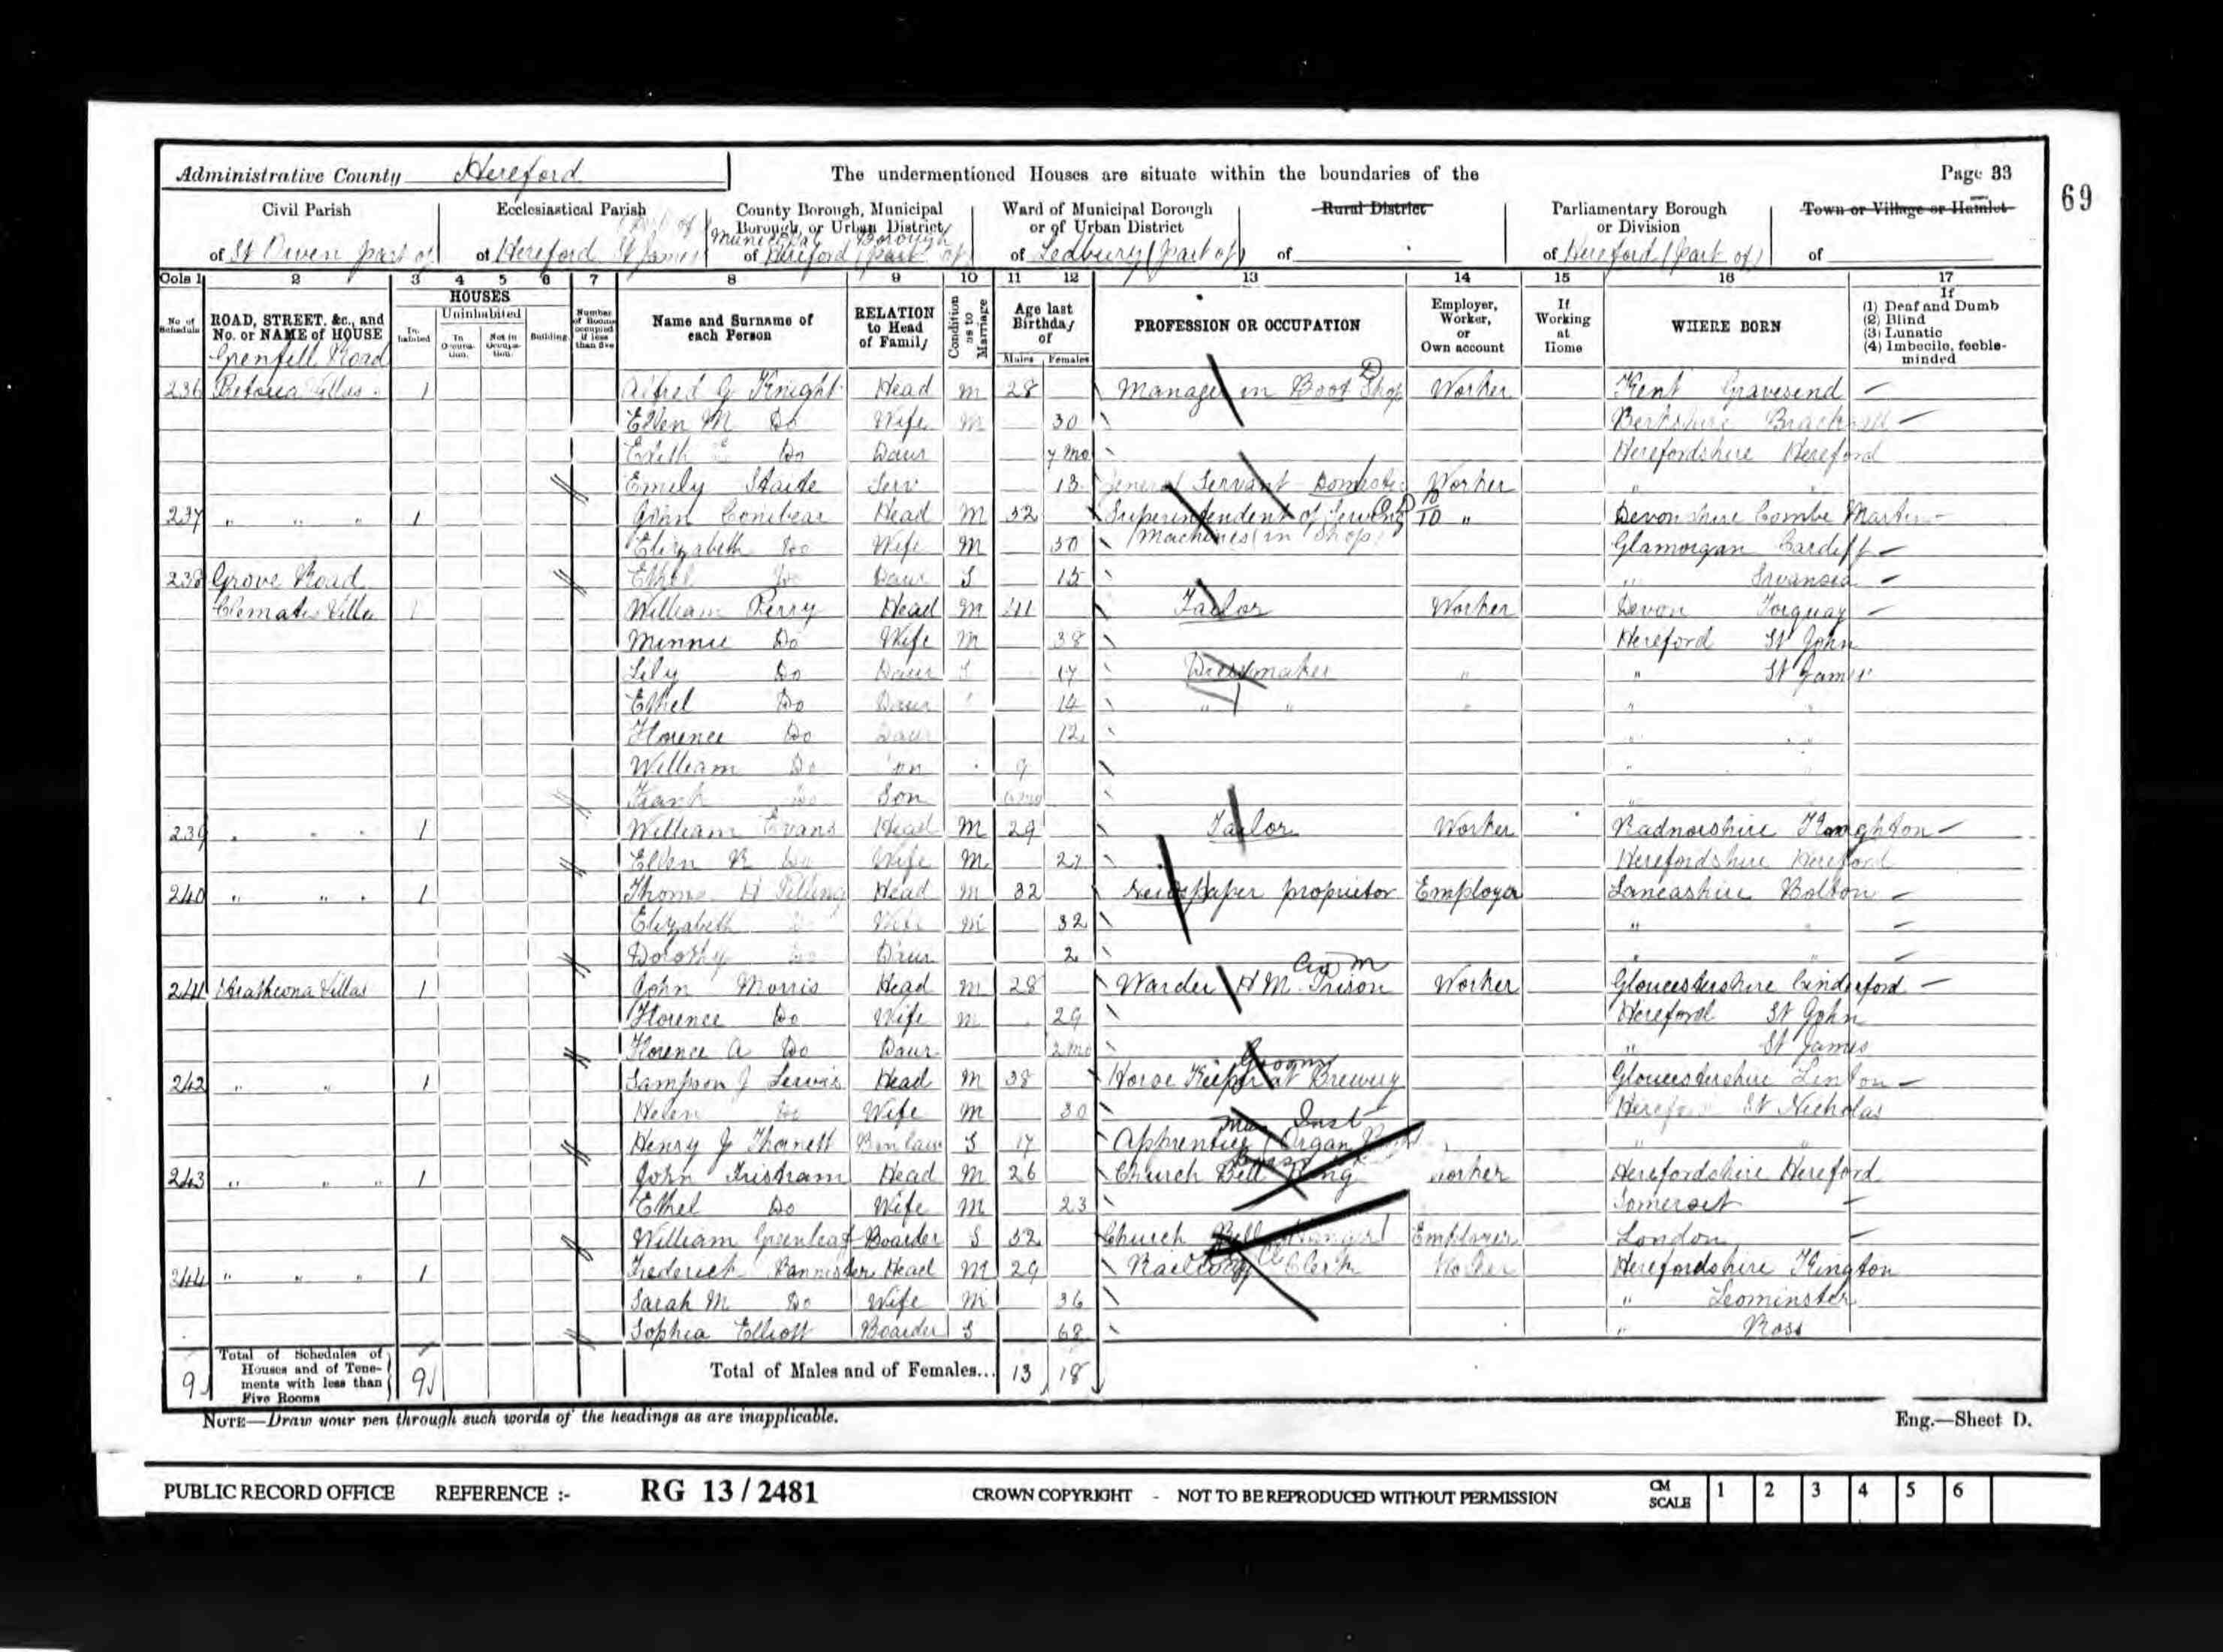 Administrative County Hereford The undermentioned Houses are situate within the boundaries of the Page 33
69
Civil Parish Ecclesiastical Parish County Borough, Municipal Borough, or Urban District Ward of Municipal Borough or of Urban District Rural District Parliamentary Borough or Division Town or Village or Hamlet
of St Owen part of of Hereford St James Municipal Borough of Hereford (part of) of Ledbury (part of) of of Hereford (part of) of
Cols 1 2 3 4 5 6 7 8 9 10 11 12 13 14 15 16 17
No. of Schedule ROAD, STREET, &c., and No. or NAME of HOUSE HOUSES Inhabited Uninhabited In Occupation. Not in Occupation. Building Number of Rooms occupied if less than five Name and Surname of each Person RELATION to Head of Family Condition as to Marriage Age last Birthday of Males Females PROFESSION OR OCCUPATION Employer, Worker, or Own account If Working at Home WHERE BORN If (1) Deaf and Dumb (2) Blind (3) Lunatic (4) Imbecile, feeble-minded
Grenfell Road
236 Villas 1 Alfred G Knight Head M 28 Manager in Boot Shop Worker Kent Gravesend
Ellen M Do Wife M 30 Berkshire Bracknell
Edith E Do Daur 7 mo Herefordshire Hereford
Emely Staite Serv 13 General Servant Domestic Worker " "
237 " " " 1 John Conibear Head M 32 Superintendent of Sewing " Devonshire Combe Martin
Elizabeth Do Wife M 30 Machines (in Shop) Glamorgan Cardiff
238 Grove Road Ethel Do Daur S 15 " Swansea
Clematis Villa 1 William Perry Head M 41 Tailor Worker Devon Torquay
Minnie Do Wife M 38 Hereford St John
Lily Do Daur S 17 Dressmaker " " St James
Ethel Do Daur 14 " " " " "
Florence Do Daur 12 " "
William Do Son 9 " "
Frank Do Son "
239 " " " 1 William Evans Head M 29 Tailor Worker Radnorshire Knighton
Ellen R Do Wife M 27 Herefordshire Hereford
240 " " " 1 Thomas H Pilling Head M 32 Newspaper proprietor Employer Lancashire Bolton
Elizabeth Do Wife M 32 " "
Dorothy Do Daur 2 " "
241 Strathcona Villas 1 John Morris Head M 28 Warder H M Prison Worker Gloucestershire Cinderford
Florence Do Wife M 29 Hereford St John
Florence A Do Daur 2 mo " St James
Groom
242 " " 1 Sampson J Lewis Head M 38 Horse Keeper at Brewery Gloucestershire Linton
Helen Do Wife M 30 Hereford St Nicholas
Mus Inst
Henry J Thornett Br in law S 17 Apprentice (Organ " "
243 " " " 1 John Tristram Head M 26 Church Bell Worker Herefordshire Hereford
Ethel Do Wife M 23 Somerset
William Greenleaf Boarder S 32 Church Bell Hanger Employer London
244 " " " 1 Frederick Bannister Head M 29 Railway Clerk Worker Herefordshire Kington
Sarah M Do Wife M 36 " Leominster
Sophia Elliott Boarder S 68 " Ross
9 Total of Schedules of Houses and of Tenements with less than Five Rooms 9 Total of Males and of Females... 13 18
NOTE—Draw your pen through such words of the headings as are inapplicable. Eng.—Sheet D.
PUBLIC RECORD OFFICE REFERENCE :- RG 13/2481 CROWN COPYRIGHT - NOT TO BE REPRODUCED WITHOUT PERMISSION CM SCALE 1 2 3 4 5 6